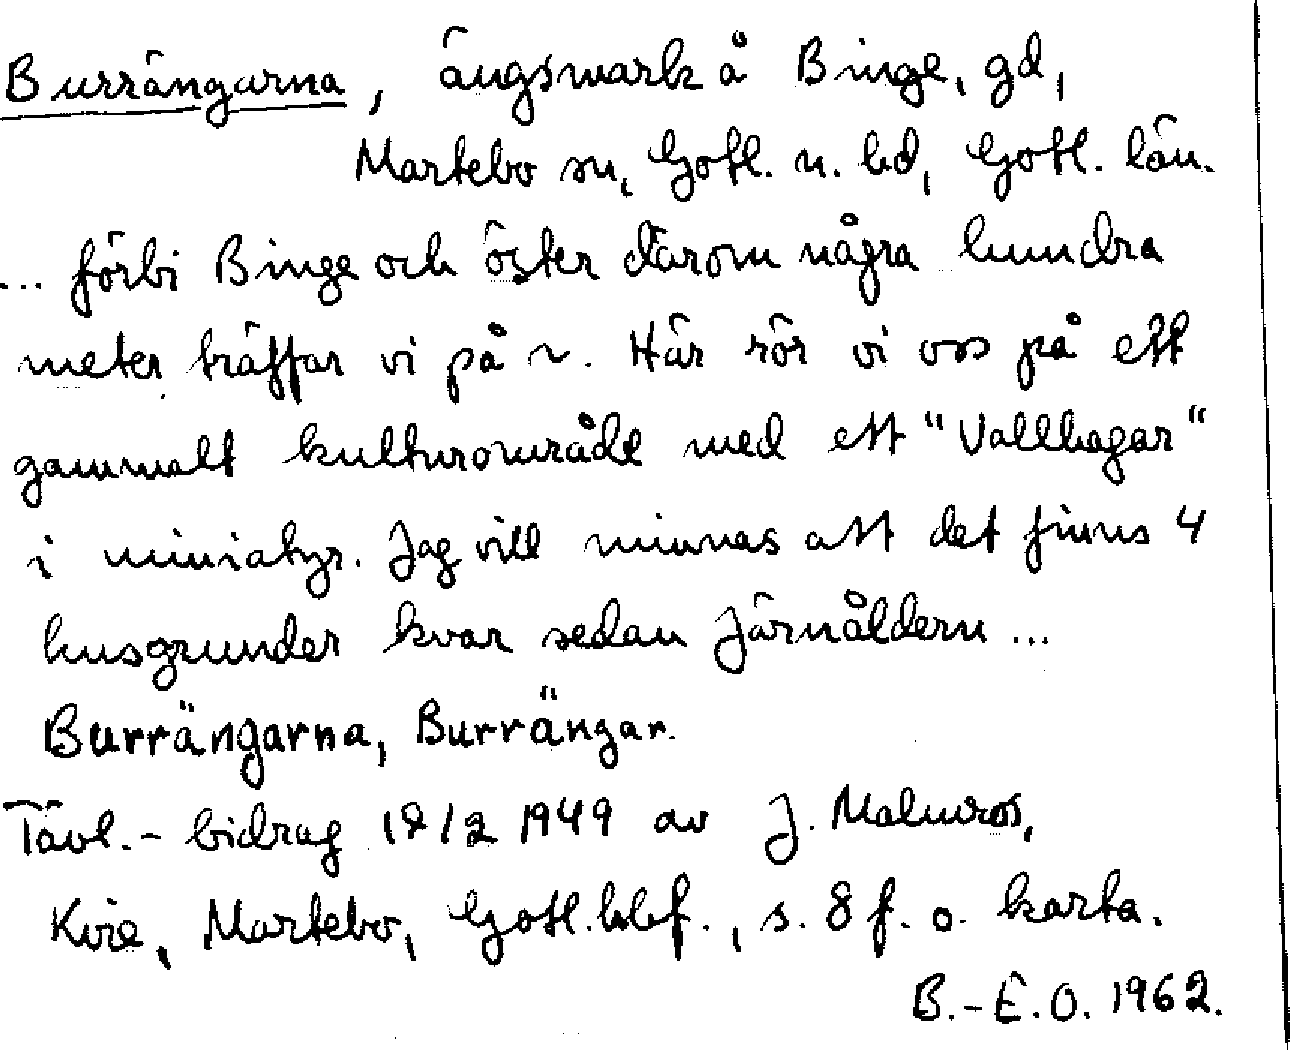 Burrängarna, ängsmark å Binge, gd,
Martebo sn, Gotl. n. hd, Gotl. län.
... förbi Binge och öster därom några hundra
meter träffar vi på ~. Här rör vi oss på ett
gammalt kulturområde med ett "Vallhagar"
i miniatyr. Jag vill minnas att det finns 4
husgrunder kvar sedan järnåldern ...
Burrängarna, Burrängar.
Tävl.-bidrag 18/2 1949 av J. Malmros,
Kvie, Martebo, Gotl. hbf., s. 8 f. o. karta.
B.-E.O. 1962.